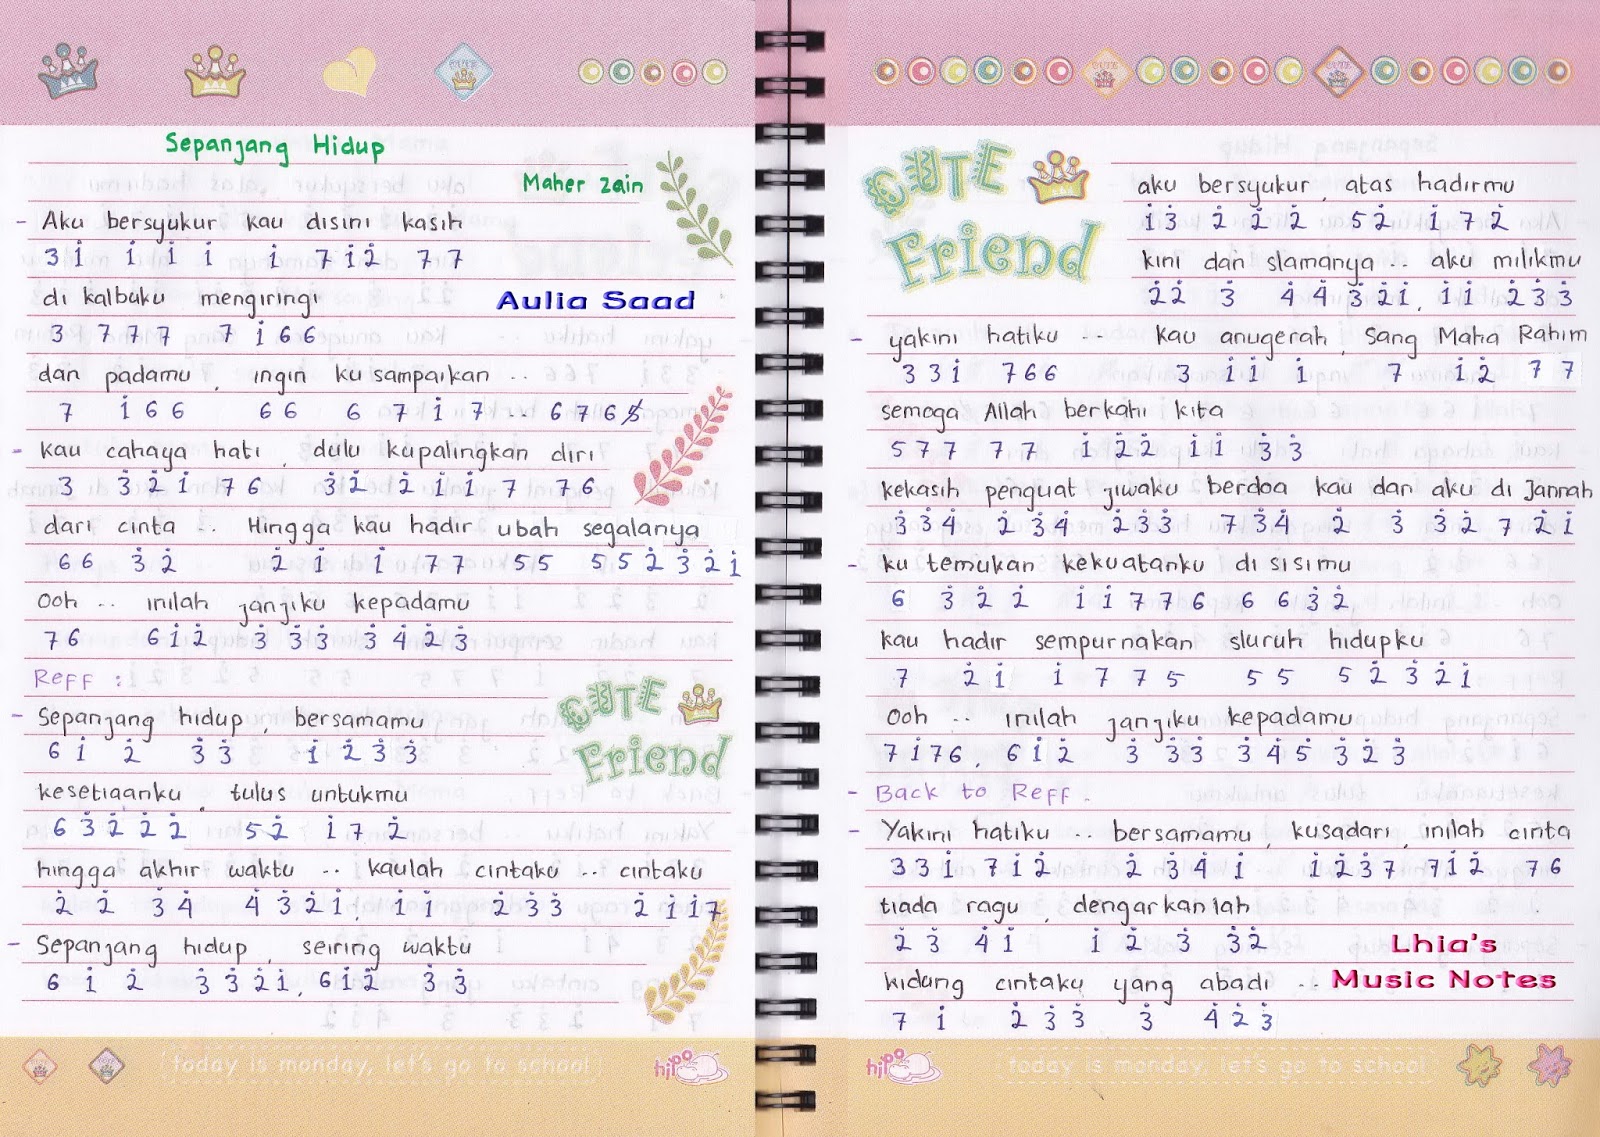 Sepanjang Hidup
Maher Zain
- Aku bersyukur kau disini kasih
3 1̇ 1̇ 1̇ 1̇ 1̇ 7 1̇ 2̇ 7 7
di kalbuku mengiringi
3 7 7 7 7 1̇ 6 6
Aulia Saad
dan padamu , ingin ku sampaikan ..
7 1̇ 6 6 6 6 6 7 1̇ 7 .. 6 7 6 5
- kau cahaya hati , dulu kupalingkan diri
3 3̇ 2̇ 1̇ 7 6 3̇ 2̇ 2̇ 1̇ 1̇ 7 7 6
dari cinta .. Hingga kau hadir ubah segalanya
6 6 3̇ 2̇ 2̇ 1̇ 1̇ 7 7 5 5 5 5 2̇ 3̇ 2̇ 1̇
Ooh .. inilah janjiku kepadamu
7 6 6 1̇ 2̇ 3̇ 3̇ 3̇ 3̇ 4̇ 2̇ 3̇
Reff :
- Sepanjang hidup , bersamamu
6 1̇ 2̇ 3̇ 3̇ 1̇ 2̇ 3̇ 3̇
kesetiaanku , tulus untukmu
6 3̇ 2̇ 2̇ 2̇ 5 2̇ 1̇ 7 2̇
hingga akhir waktu .. kaulah cintaku .. cintaku
2̇ 2̇ 3̇ 4̇ 4̇ 3̇ 2̇ 1̇ . 1̇ 1̇ 2̇ 3̇ 3̇ 2̇ 1̇ 1̇ 7
- Sepanjang hidup , seiring waktu
6 1̇ 2̇ 3̇ 3̇ 2̇ 1̇ , 6 1̇ 2̇ 3̇ 3̇
CUTE
Friend
today is monday, let's go to school
hipo
CUTE
Friend
aku bersyukur , atas hadirmu
1̇ 3̇ 2̇ 2̇ 2̇ 5 2̇ 1̇ 7 2̇
kini dan slamanya .. aku milikmu
2̇ 2̇ 3̇ 4̇ 4̇ 3̇ 2̇ 1̇ . 1̇ 1̇ 2̇ 3̇ 3̇
- yakini hatiku .. kau anugerah , Sang Maha Rahim
3 3 1̇ 7 6 6 3 1̇ 1̇ 1̇ 7 1̇ 2̇ 7 7
semoga Allah berkahi kita
5 7 7 7 7 1̇ 2̇ 2̇ 1̇ 1̇ 3̇ 3̇
kekasih penguat jiwaku berdoa kau dan aku di Jannah
3̇ 3̇ 4̇ 2̇ 3̇ 4̇ 2̇ 3̇ 3̇ 7 3̇ 4̇ 2̇ 3̇ 3̇ 2̇ 7 2̇ 1̇
- ku temukan kekuatanku di sisimu
6 3̇ 2̇ 2̇ 1̇ 1̇ 7 7 6 6 6 3̇ 2̇
kau hadir sempurnakan sluruh hidupku
7 2̇ 1̇ 1̇ 7 7 5 5 5 5 2̇ 3̇ 2̇ 1̇
Ooh .. inilah janjiku kepadamu
7 1̇ 7 6 , 6 1̇ 2̇ 3̇ 3̇ 3̇ 3̇ 4̇ 5̇ 3̇ 2̇ 3̇
- Back to Reff .
- Yakini hatiku .. bersamamu , kusadari , inilah cinta
3 3 1̇ 7 1̇ 2̇ 2̇ 3̇ 4̇ 1̇ 1̇ 2̇ 3̇ 7 , 7 1̇ 2̇ 7 6
tiada ragu , dengarkanlah
2̇ 3̇ 4̇ 1̇ 1̇ 2̇ 3̇ 3̇ 2̇
Lhia's
Music Notes
kidung cintaku yang abadi ..
7 1̇ 2̇ 3̇ 3̇ 3̇ 4̇ 2̇ 3̇
hipo
today is monday, let's go to school